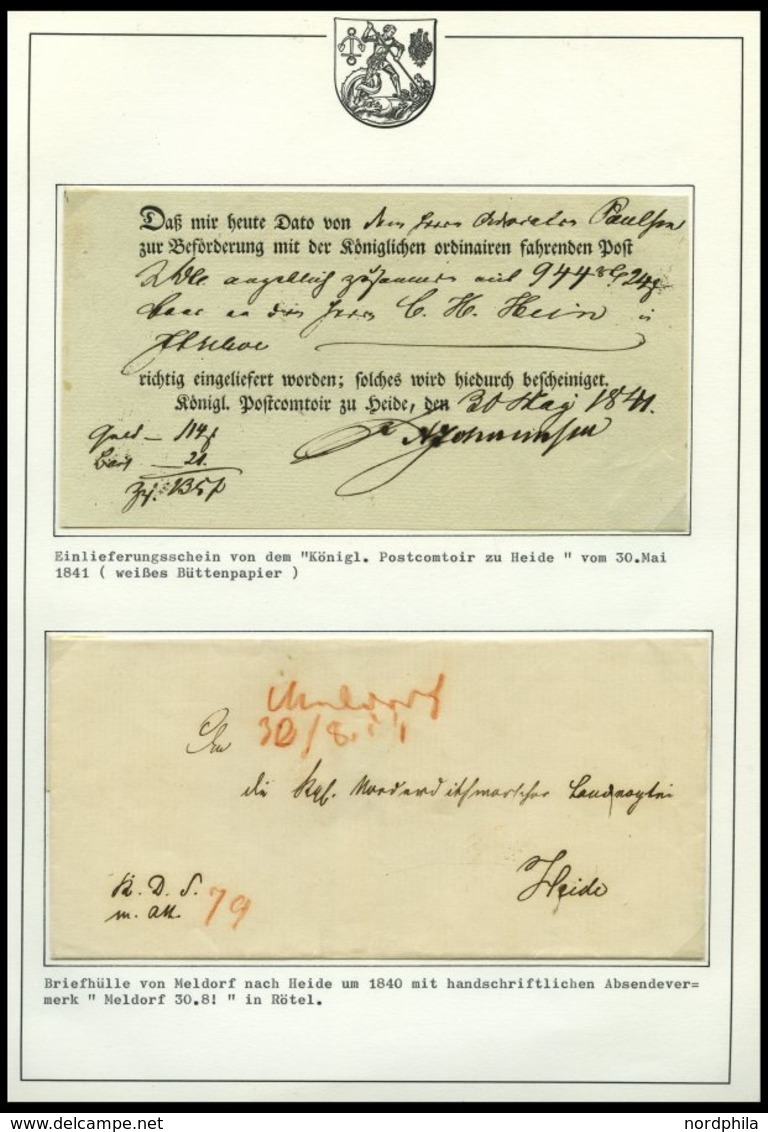 Daß mir heute Dato von dem Herrn Advocaten Paulsen
zur Beförderung mit der Königlichen ordinairen fahrenden Post
angeblich zusammen mit 944
an den Herrn C. H. Hein in
Itzehoe
richtig eingeliefert worden; solches wird hiedurch bescheiniget.
Königl. Postcomtoir zu Heide, den 30 May 1841.
Einlieferungsschein von dem "Königl. Postcomtoir zu Heide " vom 30.Mai
1841 ( weißes Büttenpapier )
Meldorf
30/8.
An
die Kgl. Norderdithmarscher Landvogtei
Heide
K. D. S.
m. Att.
79
Briefhülle von Meldorf nach Heide um 1840 mit handschriftlichen Absendever=
merk " Meldorf 30.8! " in Rötel.
www.delcampe.net
nordphila